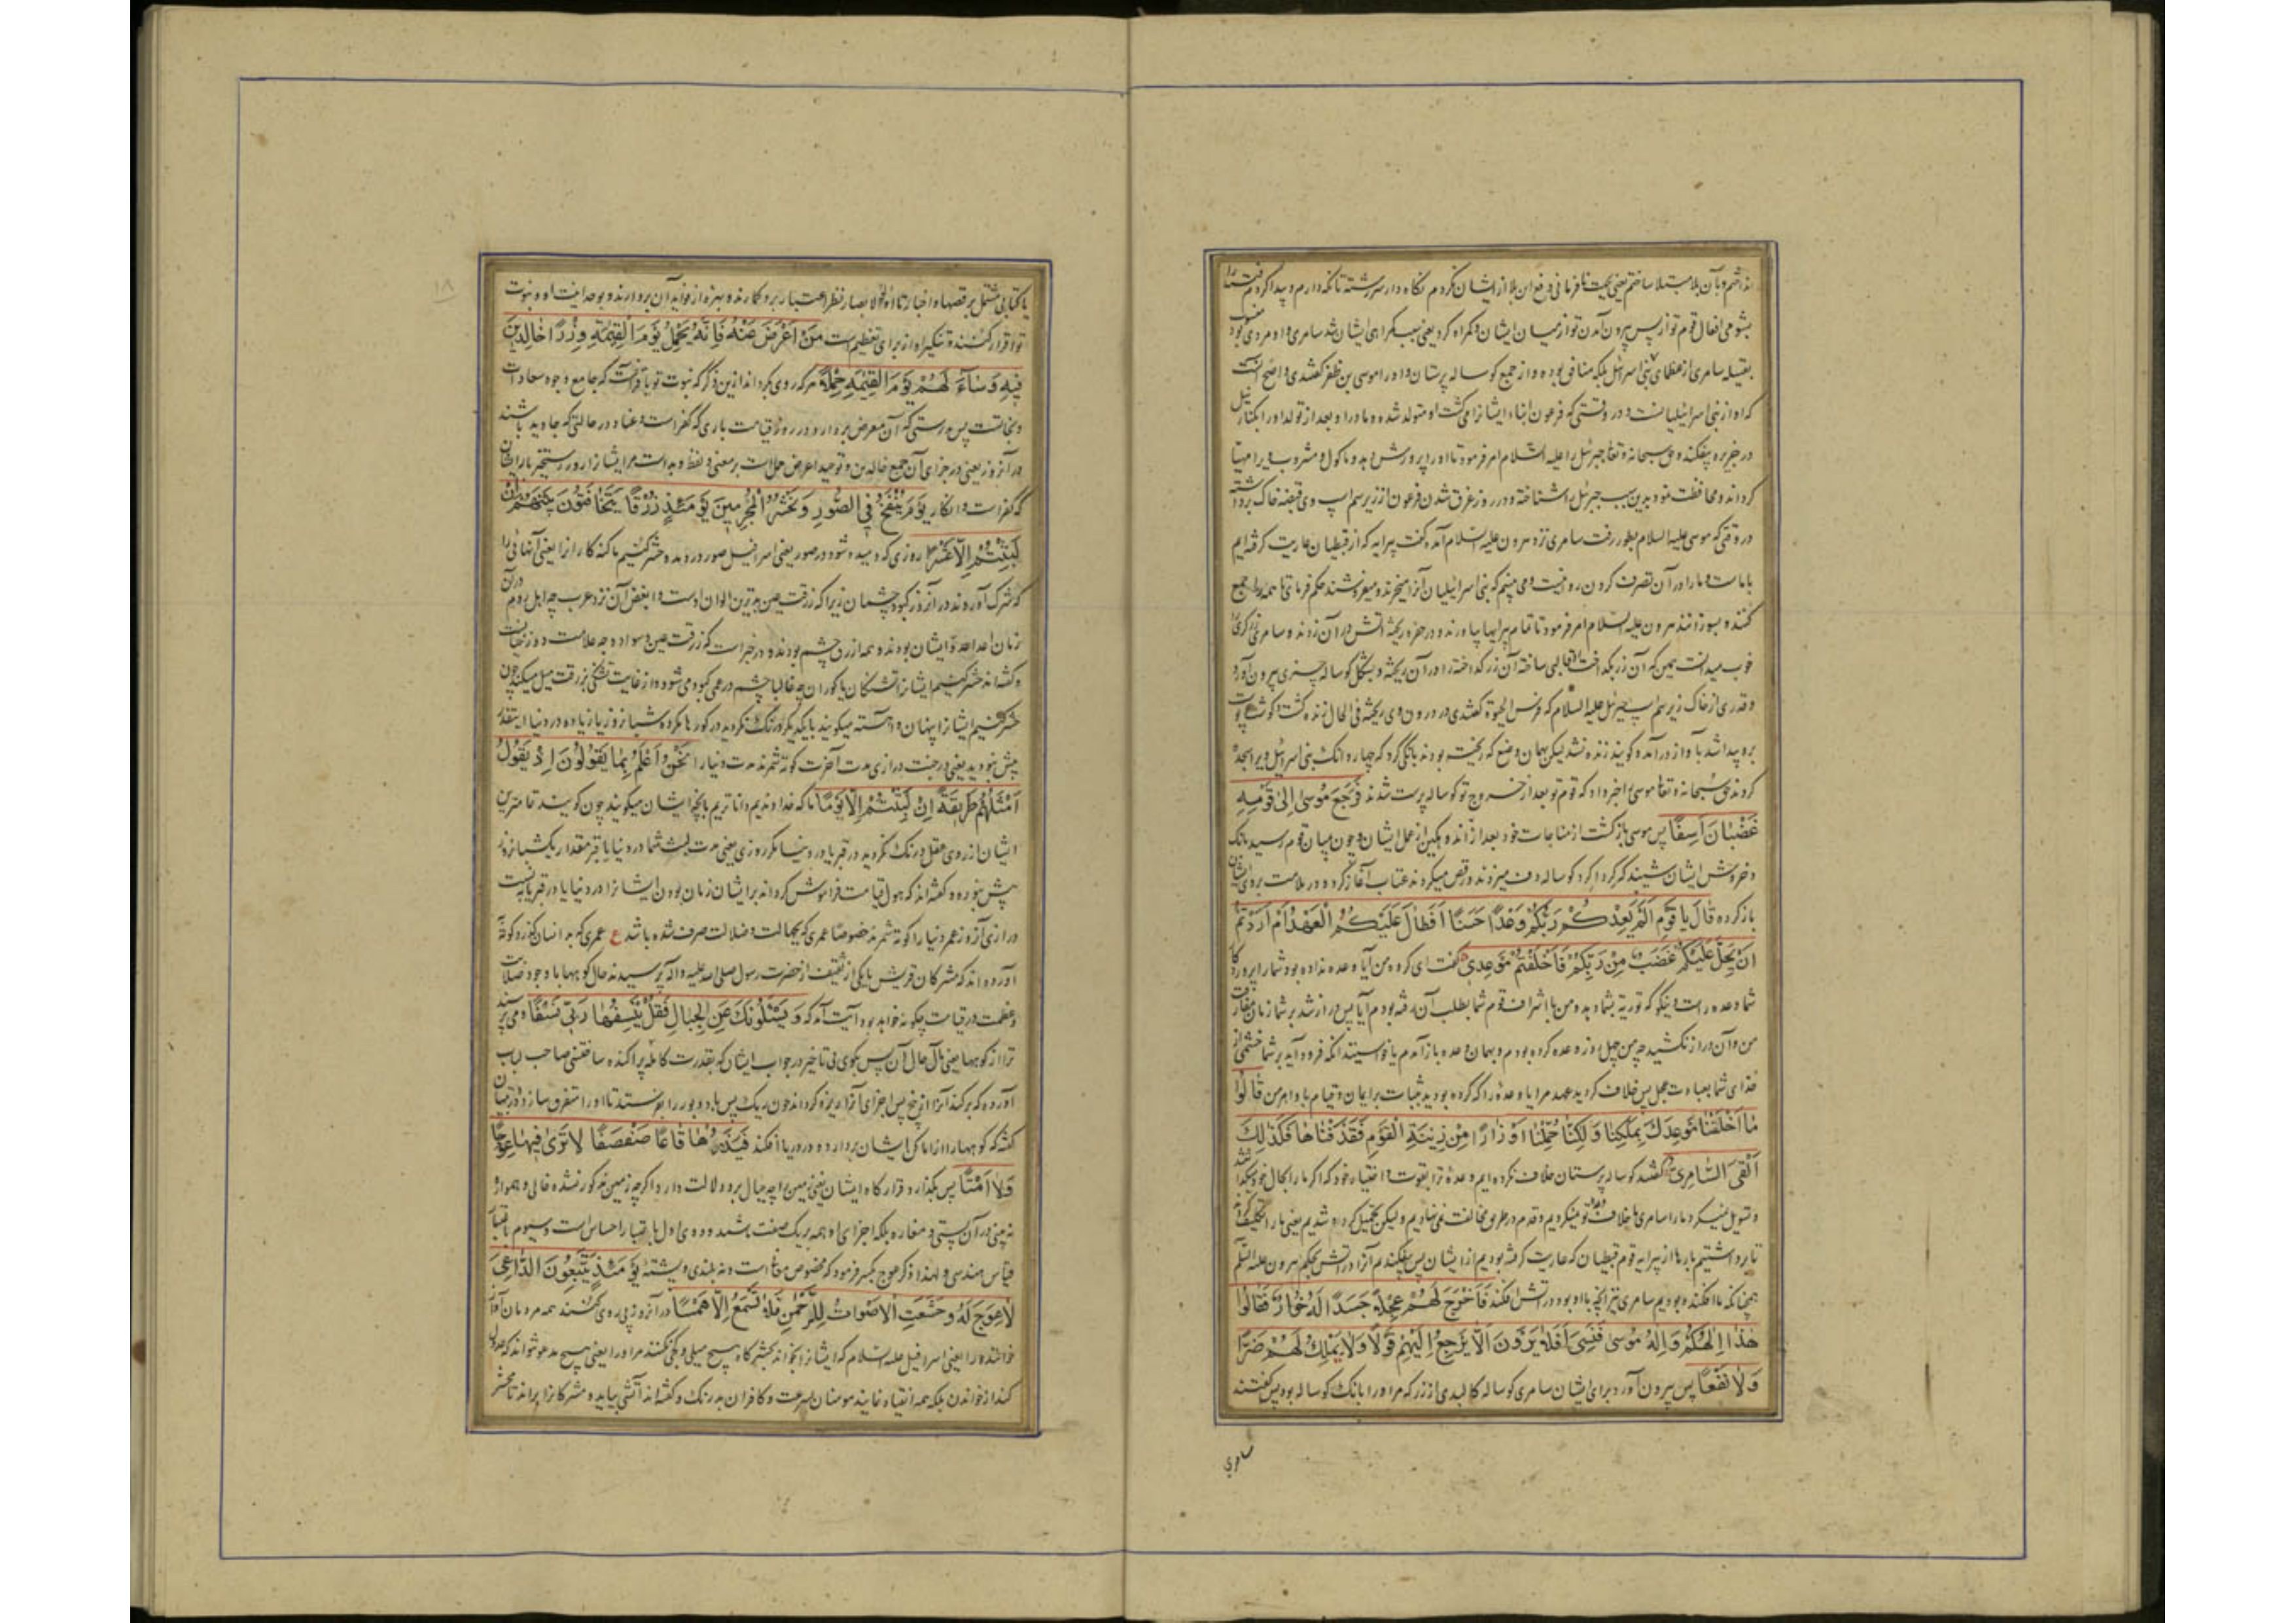 بشومی افعال قوم تو از پس بیرون آمدن تو از میان ایشان و گمراه کرد یعنی سبب گمراهی ایشان شد سامری و او مردی بود
بقبیله سامری از عظمای بنی اسرائیل بلکه منافق بوده و از جمع کوساله پرستان و او را موسی بن ظفر گفتندی و اصح آنست
که او از بنی اسرائیلیانست و در وقتی که فرعون ابناء ایشانرا میکشت او متولد شده و مادر او بعد از تولد او را بکنار نیل
در جزیره بیفکند و حق سبحانه و تعالی جبرئیل را علیه السلام امر فرمود تا او را پرورش دهد و ماکول و مشروب ویرا مهیا
گرداند و محافظت نمود بدین سبب جبرئیل را شناخته و در روز غرق شدن فرعون از زیر سم اسپ وی قبضه خاک برداشته
در وقتی که موسی علیه السلام بطور رفت سامری نزد هرون علیه السلام آمد و گفت پیرایه که از قبطیان عاریت گرفته ایم
با ماست و ما را در آن تصرف کردن روا نیست و می بینم که بنی اسرائیلیان آنرا میخرند و میفروشند حکم فرمای تا همه را جمع
کنند و بسوزانند هرون علیه السلام امر فرمود تا تمام پیرایها بیاورند و در حفره ریخته آتش در آن زدند و سامری زرگری
خوب میدانست همین که آن زر بگداخت قالبی ساخته آن زر گداخته را در آن ریخته و بشکل کوساله چیزی بیرون آورد
و قدری از خاک زیر سم اسپ جبرئیل علیه السلام که فرس الحیوة گفتندی در درون وی ریخته فی الحال زنده گشت و گوشت و پوست
برو پیدا شد بآواز درآمد و گویند زنده نشد لیکن بهمان وضع که ریخت بودند بانگی کرد که چهار دانک بنی اسرائیل ویرا سجده
کردند حق سبحانه و تعالی موسی را خبر داد که قوم تو بعد از خروج تو کوساله پرست شدند فَرَجَعَ مُوسىٰ اِلىٰ قَوْمِهِ
غَضْبَانَ اَسِفًا پس موسی بازگشت از مناجات خود بعد از آن اندوهگین از عمل ایشان و چون میان قوم رسید بانگ
و خروش ایشان شنید که گرداگرد کوساله دف میزدند و رقص میکردند عتاب آغاز کرد و در ملامت بروی ایشان
باز کرده قَالَ يَا قَوْمِ اَلَمْ يَعِدْكُمْ رَبُّكُمْ وَعْدًا حَسَنًا اَفَطَالَ عَلَيْكُمُ الْعَهْدُ اَمْ اَرَدْتُمْ
اَنْ يَحِلَّ عَلَيْكُمْ غَضَبٌ مِنْ رَبِّكُمْ فَاَخْلَفْتُمْ مَوْعِدِي گفت ای گروه من آیا وعده نداده بود شما را پروردگار
شما وعده راست و نیکو که توریة بشما دهد و من با اشراف قوم شما بطلب آن رفته بودم آیا پس دراز شد بر شما زمان مفارقت
من و آن دراز نکشید چه من چهل روز وعده کرده بودم و بهمان وعده باز آمدم یا خواستید آنکه فرود آید بر شما خشمی از
خدای شما بعبادت عجل پس خلاف کردید عهد مرا یا وعده را که کرده بودید بثبات بر ایمان و قیام باوامر من قَالُوا
مَا اَخْلَفْنَا مَوْعِدَكَ بِمَلْكِنَا وَلٰكِنَّا حُمِّلْنَا اَوْزَارًا مِنْ زِينَةِ الْقَوْمِ فَقَذَفْنَاهَا فَكَذٰلِكَ
اَلْقَى السَّامِرِيُّ گفتند کوساله پرستان خلاف نکرده ایم وعدۀ ترا بقوت و اختیار خود که اگر ما را بحال خود میگذاشتند
و تسویل نمیکرد ما را سامری ما خلاف وعده تو نمیکردیم و قدم در طریق مخالفت نمی نهادیم ولیکن تحمیل کرده شدیم یعنی ما را تکلیف کردند
تا برداشتیم بارها از پیرایه قوم قبطیان که عاریت گرفته بودیم از ایشان پس بیفکندیم آنرا در آتش بحکم هرون علیه السلام
همچنانکه ما افکنده بودیم سامری نیز آنچه با او بود در آتش افکند فَاَخْرَجَ لَهُمْ عِجْلًا جَسَدًا لَهُ خُوَارٌ فَقَالُوا
هٰذَا اِلٰهُكُمْ وَاِلٰهُ مُوسىٰ فَنَسِيَ اَفَلَا يَرَوْنَ اَلَّا يَرْجِعُ اِلَيْهِمْ قَوْلًا وَلَا يَمْلِكُ لَهُمْ ضَرًّا
وَلَا نَفْعًا پس بیرون آورد برای ایشان سامری کوساله کالبدی از زر که مر او را بانک کوساله بود پس گفتند
سامری
یا کتابی مشتمل بر قصها و اخبار تا اولوا الابصار نظر اعتبار برو گمارند و بهره از فواید آن بردارند و بوحدانیت او و نبوت
تو اقرار کنند و تنکیر او از برای تعظیم است مَنْ اَعْرَضَ عَنْهُ فَاِنَّهُ يَحْمِلُ يَوْمَ الْقِيٰمَةِ وِزْرًا خَالِدِينَ
فِيهِ وَسَآءَ لَهُمْ يَوْمَ الْقِيٰمَةِ حِمْلًا هر که روی بگرداند ازین ذکر که نبوت تو یا قرآنست که جامع وجوه سعادات
و نجاتست پس بدرستی که آن معرض بردارد در روز قیامت باری که کفر است و عناد در حالتی که جاوید باشند
در آنروز یعنی در جزای آن جمع خالدین و توحید اعرض حمل است بر معنی و لفظ و بد است مر ایشانرا روز رستخیز بار ایشان
که کفر است و انکار يَوْمَ يُنْفَخُ فِي الصُّورِ وَنَحْشُرُ الْمُجْرِمِينَ يَوْمَئِذٍ زُرْقًا يَتَخَافَتُونَ بَيْنَهُمْ اِنْ
لَبِثْتُمْ اِلَّا عَشْرًا روزی که دمیده شود در صور یعنی اسرافیل صور در دمد و حشر کنیم ما گنه کارانرا یعنی آنهائی را
که شرک آورده اند در آنروز کبود چشمان زیرا که زرقت عین بدترین الوان اوست و ابغض آن نزد عرب چه اهل روم در آن
زمان اعدا عدو ایشان بودند و همه ازرق چشم بودند و در خبر است که زرقت عین و سواد وجه علامت دوزخیانست
و گفته اند حشر کنیم ایشانرا تشنگان یا کوران چه غالبا چشم در عمی کبود می شود و از غایت تشنگی بزرقت میل میکند چون
حشر کنیم ایشانرا پنهان و آهسته میگویند با یکدیگر که درنگ نکردید در گورها مگر ده شبانروز یا زیاده در دنیا اینقدر
پیش نبودید یعنی در جنب درازی مدت آخرت کوته شمرند مدت دنیا را نَحْنُ اَعْلَمُ بِمَا يَقُولُونَ اِذْ يَقُولُ
اَمْثَلُهُمْ طَرِيقَةً اِنْ لَبِثْتُمْ اِلَّا يَوْمًا ما که خداوندیم داناتریم بآنچه ایشان میگویند چون گویند تمامترین
ایشان از روی عقل درنگ نکردید در قبر یا در دنیا مگر روزی یعنی مدت لبث شما در دنیا یا قبر مقدار یکشبانروز
پیش نبوده و گفته اند که هول قیامت فراموش گرداند بر ایشان زمان بودن ایشانرا در دنیا یا در قبر یا بنسبت
درازی آنروز عمر دنیا را کوته شمرند خصوصا عمری که بجهالت و ضلالت صرف شده باشد ع عمری که به انسان گذرد کوته
آورده اند که مشرکان قریش یا یکی از ثقیف از حضرت رسول صلی الله علیه و آله پرسیدند حال کوهها با وجود صلابت
و عظمت در قیامت چگونه خواهد بود آیت آمد که وَيَسْئَلُونَكَ عَنِ الْجِبَالِ فَقُلْ يَنْسِفُهَا رَبِّي نَسْفًا و می پرسند
ترا از کوهها یعنی مآل حال آن پس بگوی بی تاخیر در جواب ایشان که بقدرت کامله پراکنده ساختنی صاحب لباب
آورده که برکند آنرا از بیخ پس اجزای آنرا ریزه گرداند چون ریگ پس باد دبور را بفرستد تا او را متفرق سازد و در تبیان
گفته که کوهها را از اماکن ایشان بردارد و در دریا افکند فَيَذَرُهَا قَاعًا صَفْصَفًا لَا تَرىٰ فِيهَا عِوَجًا
وَلَا اَمْتًا پس بگذارد قرارگاه ایشان یعنی زمین را چه جبال برو دلالت دارد اگرچه زمین مذکور نشده خالی و هموار
نه بینی در آن پستی و مغاره بلکه اجزای او همه بر یک صفت باشند
قیاس هندسی و لهذا ذکر عوج بکسر فرمود که مخصوص معانی است و نه بلندی و پشته يَوْمَئِذٍ يَتَّبِعُونَ الدَّاعِيَ
لَا عِوَجَ لَهُ وَخَشَعَتِ الْاَصْوَاتُ لِلرَّحْمٰنِ فَلَا تَسْمَعُ اِلَّا هَمْسًا در آنروز پی روی کنند همه مردمان آواز
خواننده را یعنی اسرافیل علیه السلام که ایشانرا بخواند بحشرگاه هیچ میلی و کجی نکنند مر او را یعنی هیچ مدعو نتواند که عدول
کند از خواندن بلکه همه انقیاد نمایند مومنان بسرعت و کافران به درنگ و گفته اند آتشی بیاید و مشرکانرا براند تا محشر
۱۸